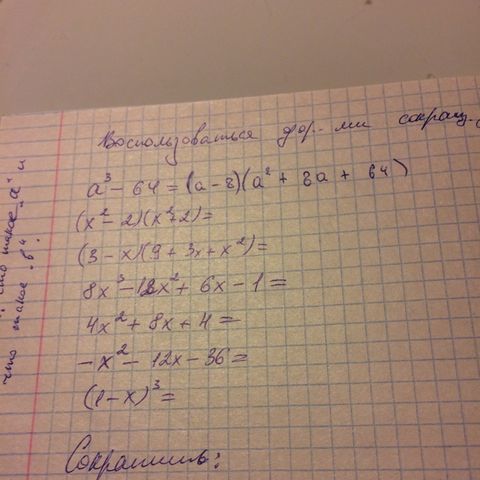 Воспользоваться фор-ми сокращ.
a³ - 64 = (a - 8)(a² + 8a + 64)
(x² - 2)(x² + 2) =
(3 - x)(9 + 3x + x²) =
8x³ - 12x² + 6x - 1 =
4x² + 8x + 4 =
-x² - 12x - 36 =
(1 - x)³ =
Сократить:
что такое "a" и
что такое "b".